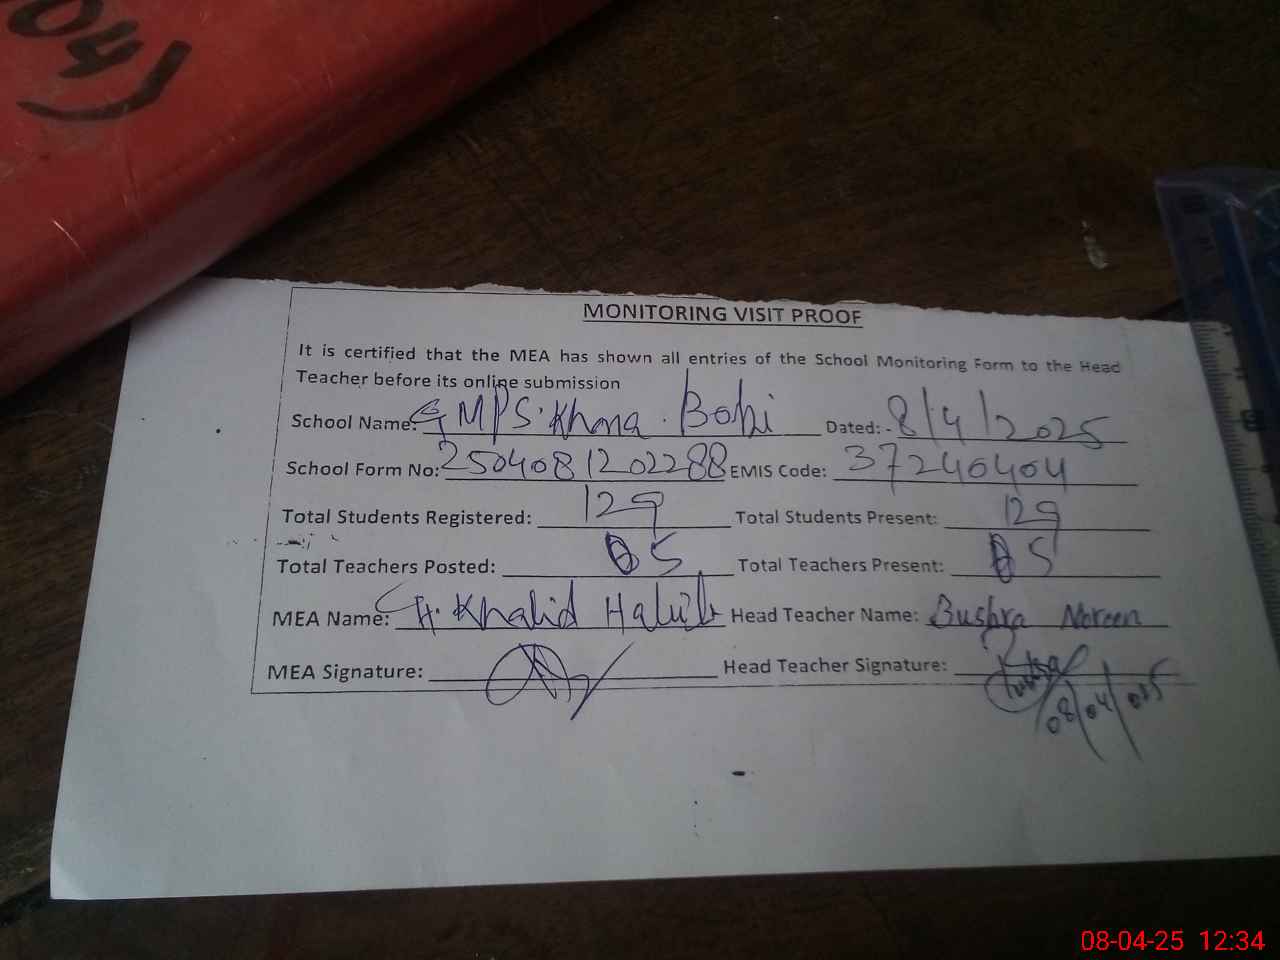 04)
MONITORING VISIT PROOF
It is certified that the MEA has shown all entries of the School Monitoring Form to the Head
Teacher before its online submission
School Name: GMPS. Khona. Bohi Dated: - 8/4/2025
School Form No: 2504081202288 EMIS Code: 37240404
Total Students Registered: 129 Total Students Present: 129
Total Teachers Posted: 05 Total Teachers Present: 05
MEA Name: Khalid Head Teacher Name: Bushra Noreen
MEA Signature: Head Teacher Signature:
08/04/025
08-04-25 12:34